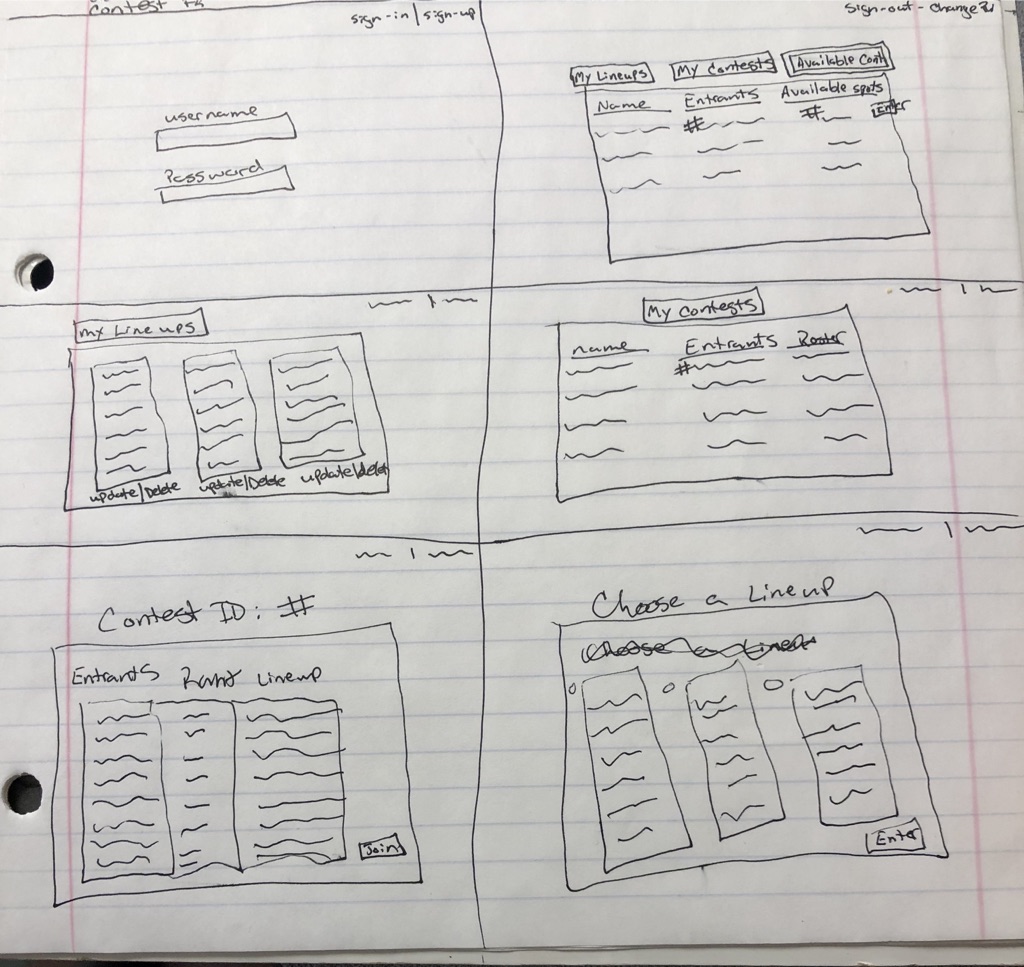 Contest
sign-in | sign-up
username
Password
Sign-out - Change
My Lineups My Contests Available Cont
Name Entrants Available spots
# # Enter
My Line ups
update/Delete update/Delete update/delet
My Contests
name Entrants
#
Contest ID: #
Entrants Rank Lineup
Join
Choose a Lineup
Choose a Lineup
Enter